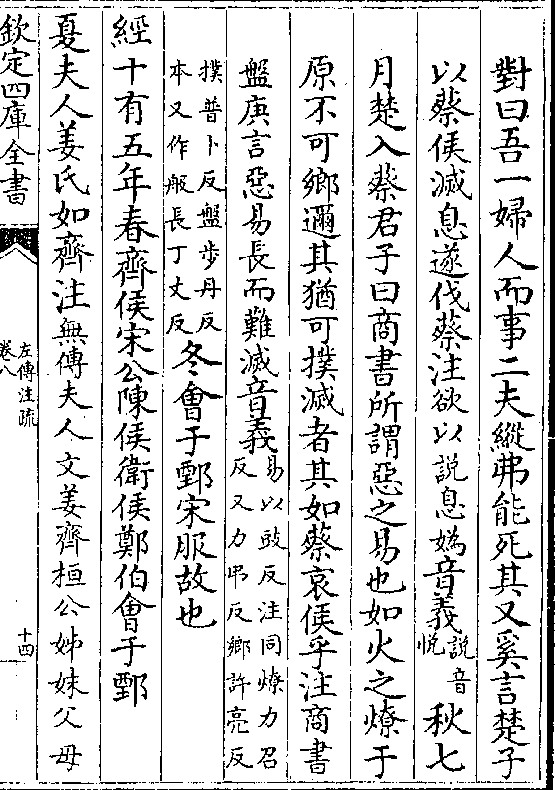 對曰吾一婦人而事二夫縱弗能死其又奚言楚子
以蔡侯滅息遂伐蔡注欲以說息媯音義說音悅秋七
月楚入蔡君子曰商書所謂惡之易也如火之燎于
原不可鄉邇其猶可撲滅者其如蔡哀侯乎注商書
盤庚言惡易長而難滅音義易以豉反注同燎力召反又力弔反鄉許亮反
撲普卜反盤步丹反本又作般長丁丈反冬會于鄄宋服故也
經十有五年春齊侯宋公陳侯衛侯鄭伯會于鄄
夏夫人姜氏如齊注無傳夫人文姜齊桓公姊妹父母
欽定四庫全書
左傳注疏
卷八
十四